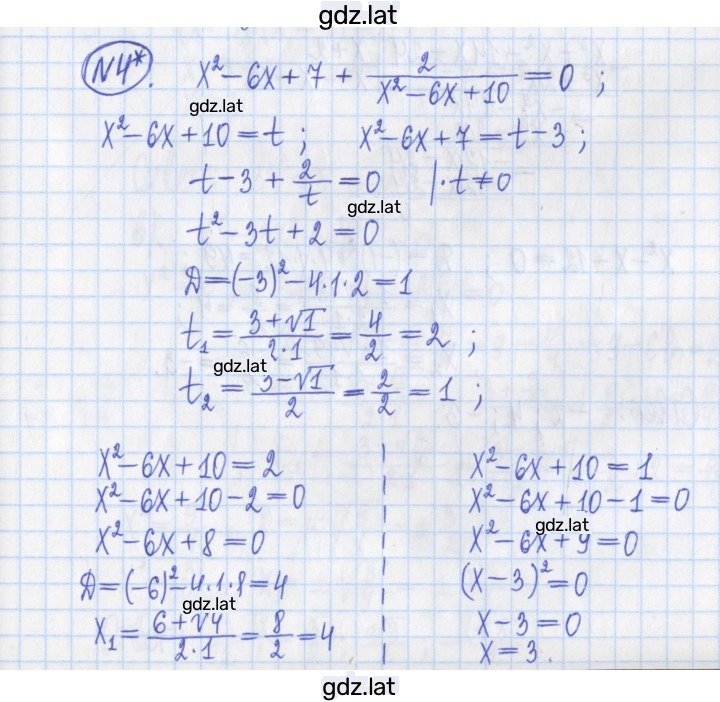 gdz.lat
N4*. x² − 6x + 7 + 2/(x² − 6x + 10) = 0 ;
gdz.lat
x² − 6x + 10 = t ; x² − 6x + 7 = t − 3 ;
t − 3 + 2/t = 0 |·t ≠ 0
gdz.lat
t² − 3t + 2 = 0
Д = (−3)² − 4·1·2 = 1
t₁ = (3 + √1)/(2·1) = 4/2 = 2 ;
gdz.lat
t₂ = (3 − √1)/2 = 2/2 = 1 ;
x² − 6x + 10 = 2
x² − 6x + 10 − 2 = 0
x² − 6x + 8 = 0
Д = (−6)² − 4·1·8 = 4
gdz.lat
x₁ = (6 + √4)/(2·1) = 8/2 = 4
x² − 6x + 10 = 1
x² − 6x + 10 − 1 = 0
gdz.lat
x² − 6x + 9 = 0
(x − 3)² = 0
x − 3 = 0
x = 3.
gdz.lat